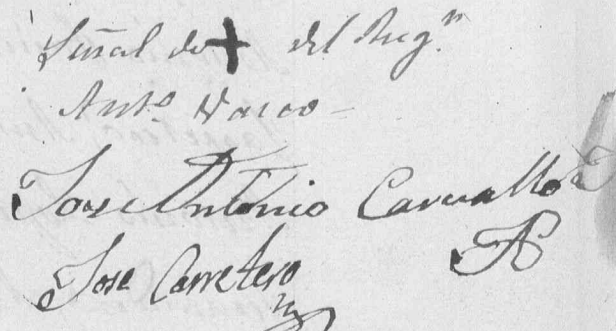 Señal de + del Reg.ʳ
Ant.º Vasco
Jose Antonio Carvallo
Jose Carretero